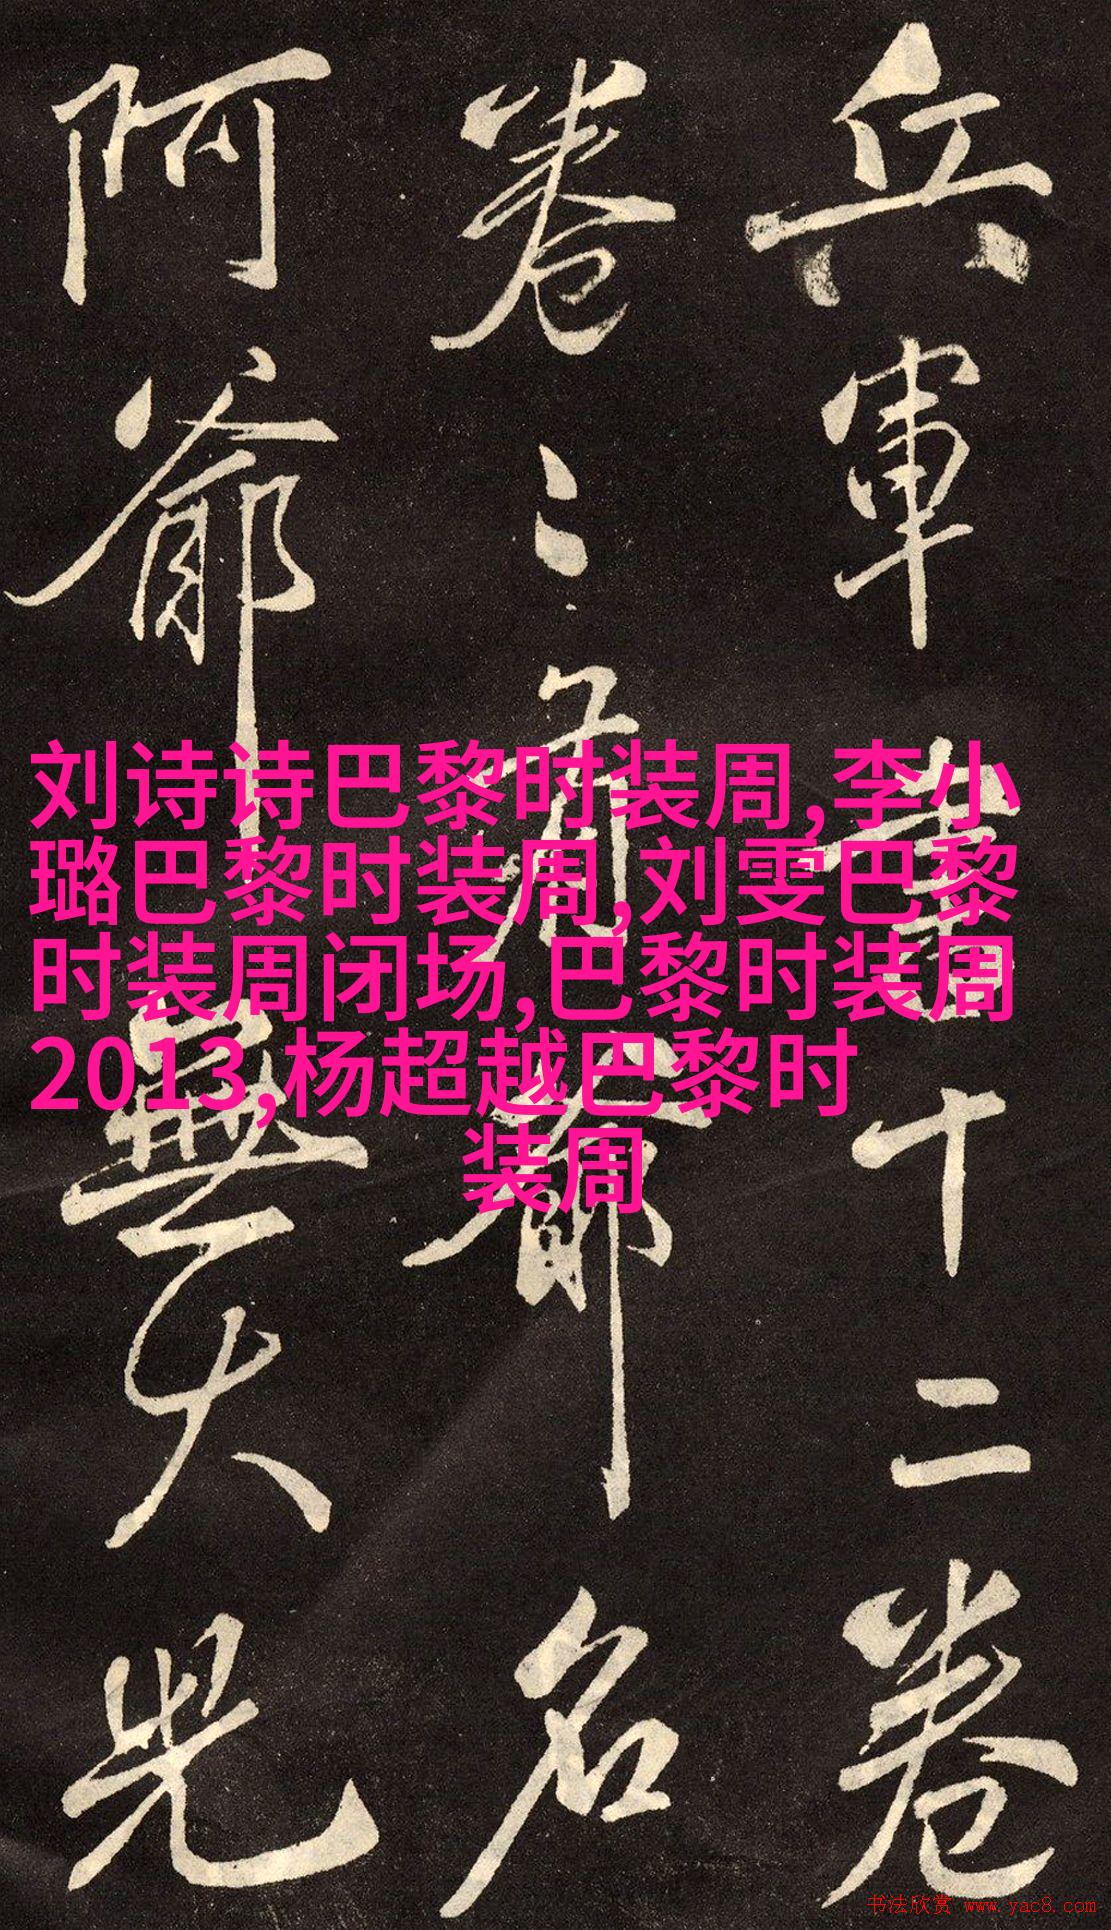 兵軍書十二卷
卷〻有爺名
阿爺無大兒
刘诗诗巴黎时装周,李小
璐巴黎时装周,刘雯巴黎
时装周闭场,巴黎时装周
2013,杨超越巴黎时
装周
书法欣赏 www.yac8.com